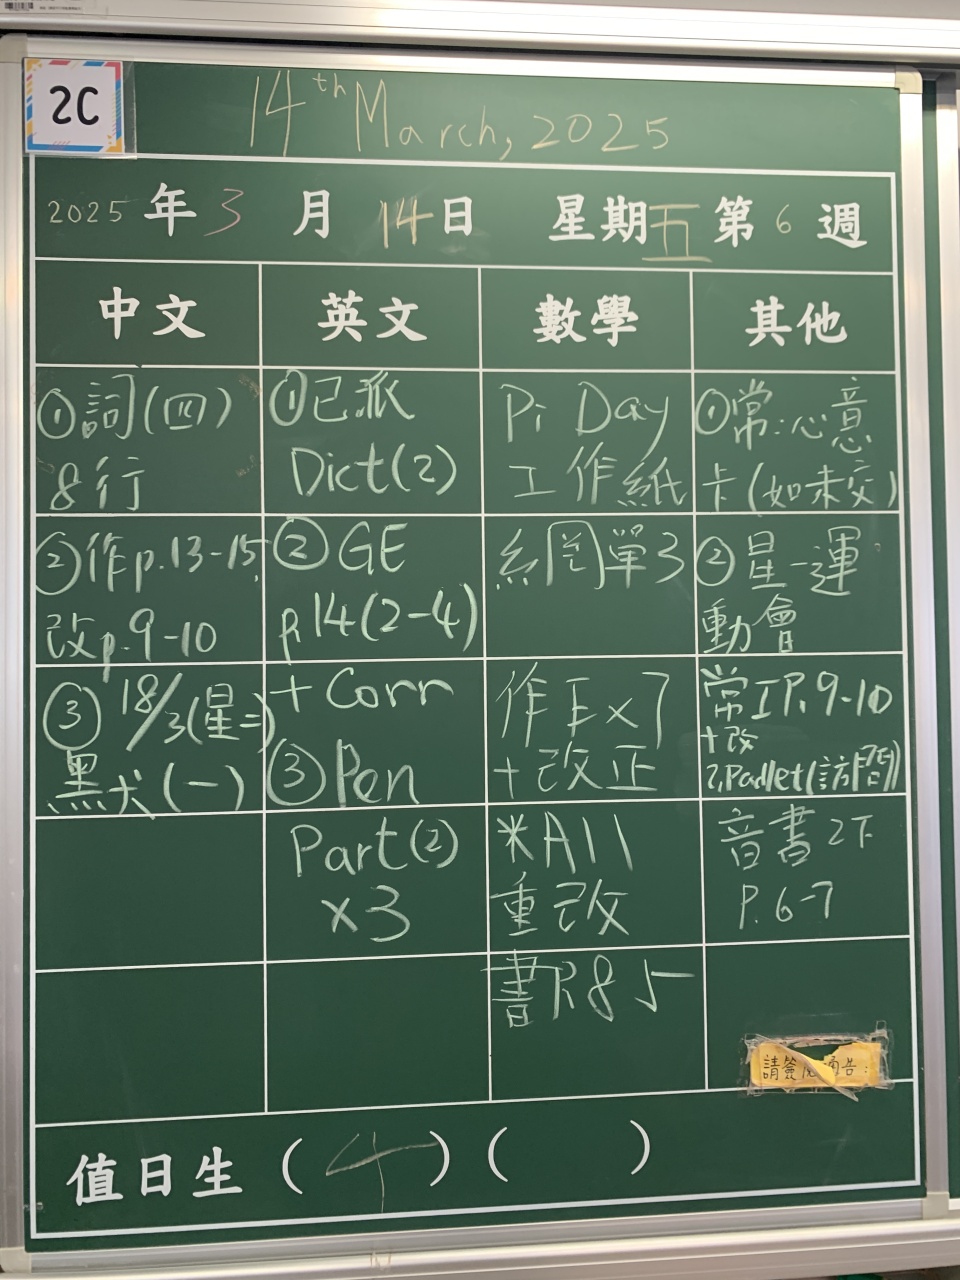 2C
14th March, 2025
2025 年 3 月 14 日 星期五 第 6 週
中文
英文
數學
其他
①詞(四)
8行
②作p.13-15,
改p.9-10
③18/3(星二)
黑犬(一)
①已派
Dict(2)
②GE
p.14(2-4)
+ Corr
③Pen
Part(2)
x3
Pi Day
工作紙
網單3
作E x7
+ 改正
*All
重改
書P.85
①常:心意
卡(如未交)
②星-運
動會
常I P.9-10
+改
2,Padlet(訪問)
音書2下
P.6-7
請簽 通告:
值日生 ( 4 ) ( )